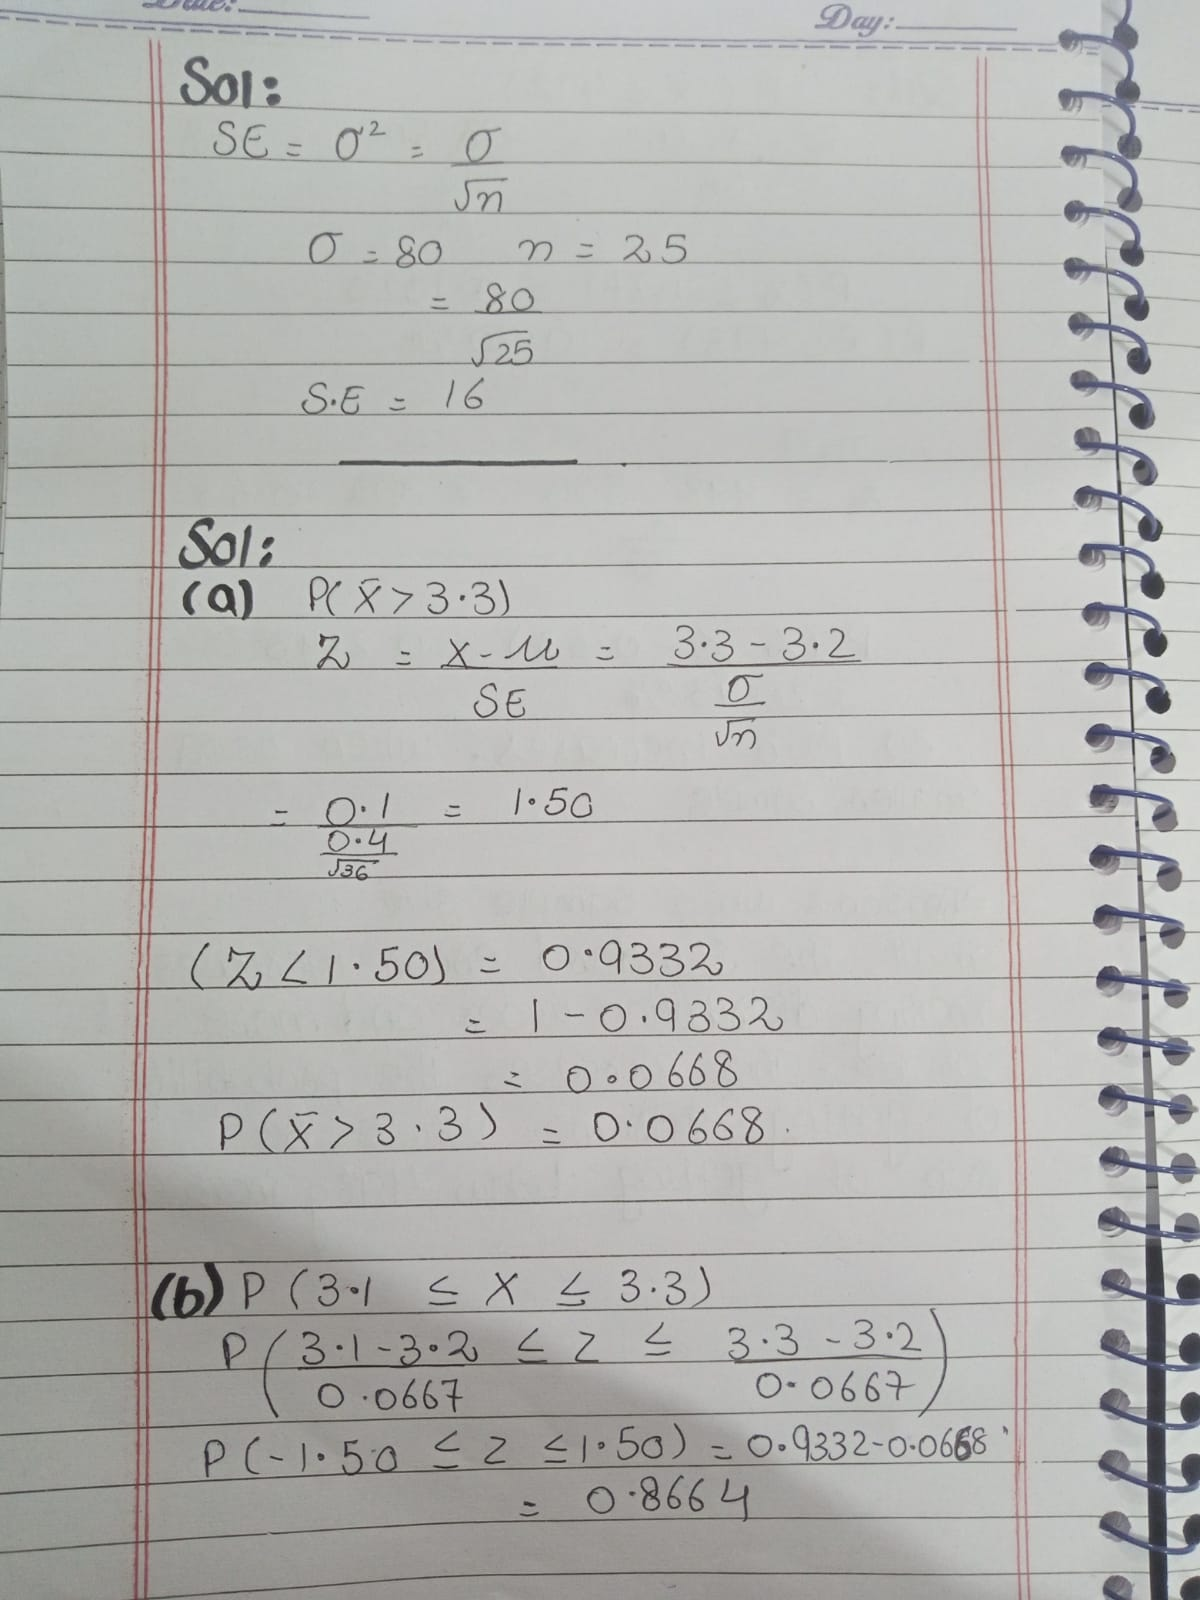 Date:
Day:
Sol:
SE = σ² = σ/√n
σ = 80 n = 25
= 80/√25
S.E = 16
Sol:
(a) P(x̄ > 3.3)
Z = x-μ/SE = 3.3 - 3.2/σ/√n
= 0.1/0.4/√36 = 1.50
(Z < 1.50) = 0.9332
= 1 - 0.9332
= 0.0668
P(x̄ > 3.3) = 0.0668.
(b) P (3.1 ≤ x ≤ 3.3)
P(3.1 - 3.2/0.0667 ≤ z ≤ 3.3 - 3.2/0.0667)
P(-1.50 ≤ z ≤ 1.50) = 0.9332-0.0668
= 0.8664